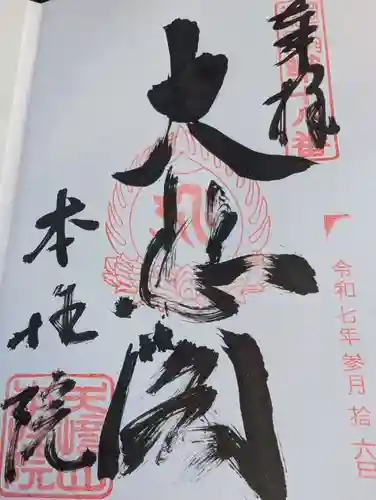 奉拝
大悲閣
令和七年参月拾六日
本性院